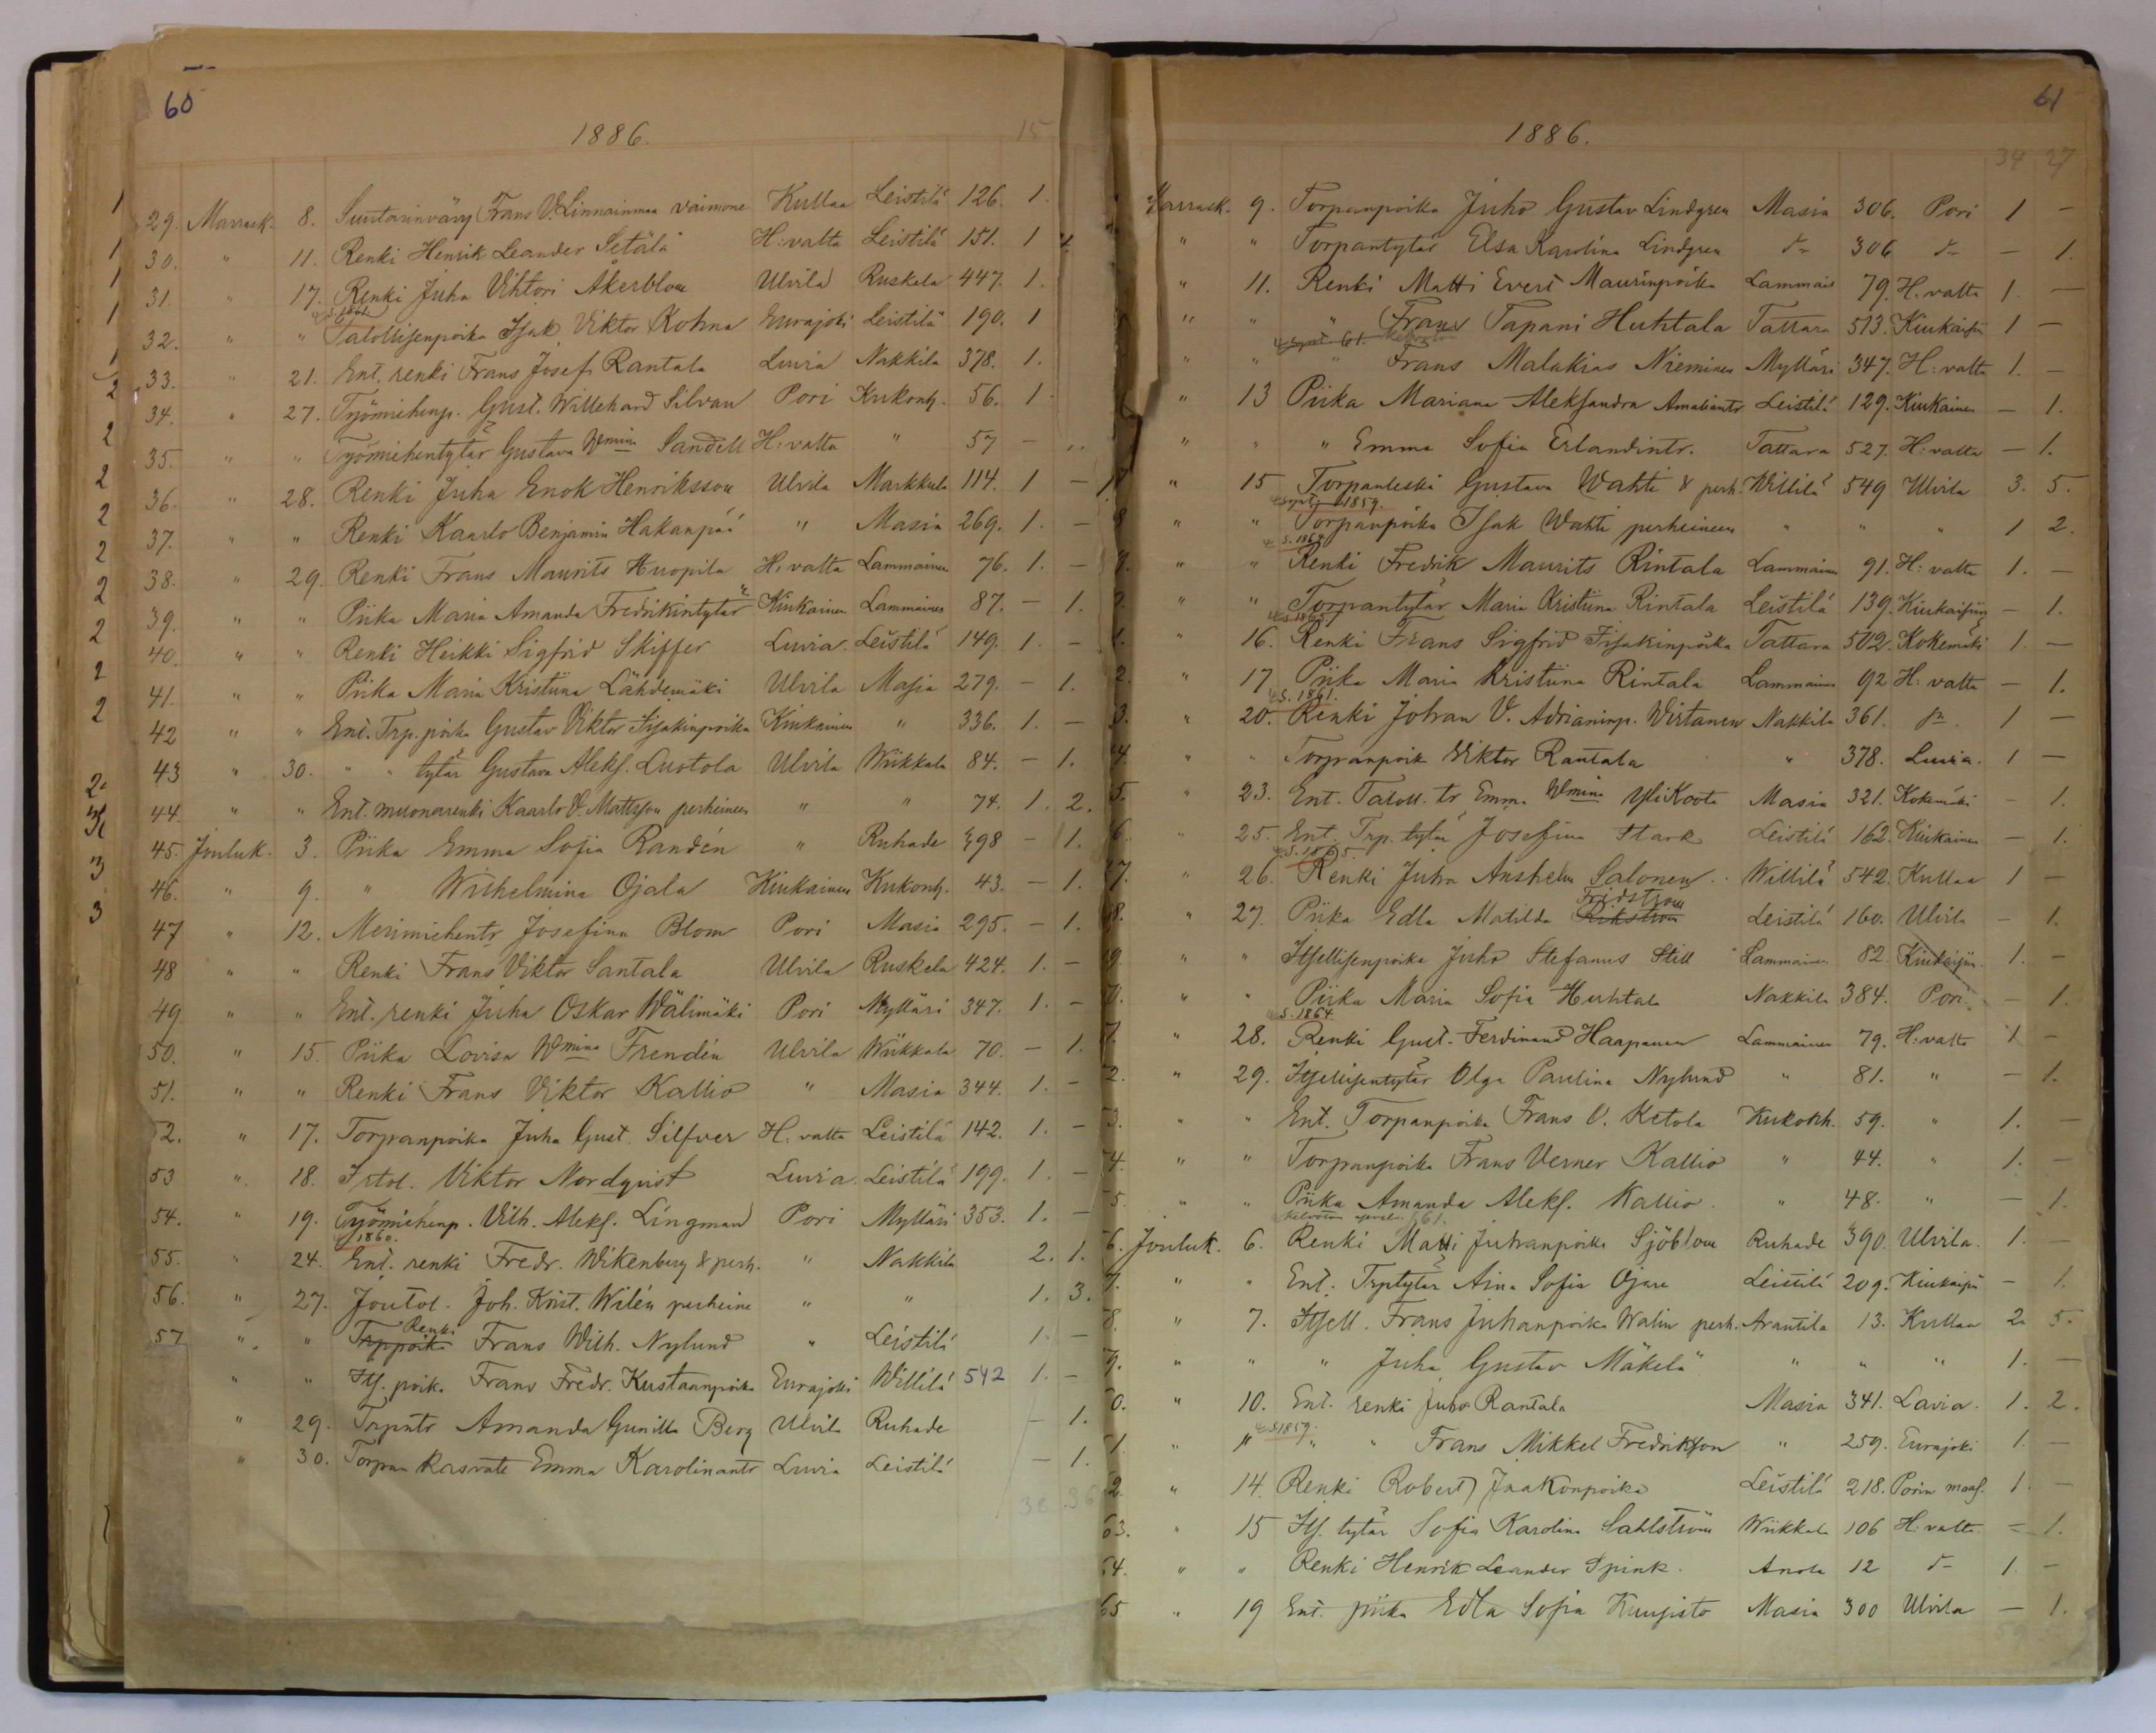 60
1886.
15
29. Marrask. 8. Suutarinvävy Frans V. Linnainmaa vaimone Kullaa Leistilä 126. 1.
30. " 11. Renki Henrik Leander Setälä H:valta Leistilä 151. 1
31. " 17. Renki Juha Vihtori Åkerblom Ulvila Ruskela 447. 1.
S. 1861.
32. " " Talollisenpoika Isak Viktor Kohna Eurajoki Leistilä 190. 1
33. " 21. Ent. renki Frans Josef Rantala Luvia Nakkila 378. 1.
34. " 27. Työmiehenp. Gust. Willehard Silvan Pori Kukonh. 56. 1
35. " " Työmiehentytär Gustava Wmina Sandell H:valta " 57 –
36. " 28. Renki Juha Enok Henriksson Ulvila Markkula 114. 1 –
37. " " Renki Kaarlo Benjamin Hakanpää " Masia 269. 1. –
38. " 29. Renki Frans Maurits Huopila H:valta Lammainen 76. 1. –
39. " " Piika Maria Amanda Fredrikintytär Kiukainen Lammainen 87. – 1.
40. " " Renki Heikki Sigfrid Skiffer Luvia Leistilä 149. 1. –
41. " " Piika Maria Kristiina Lähdemäki Ulvila Masia 279. – 1.
42 " " Ent. Trp. poika Gustav Viktor Iisakinpoika Kiukainen " 336. 1. –
43 " 30. " " tytär Gustava Aleks. Luotola Ulvila Wiikkala 84. – 1.
44. " " Ent. muonarenki Kaarlo V. Mattsson perheineen " " 74. 1. 2.
45. Jouluk. 3. Piika Emma Sofia Randén " Ruhade 398 – 1.
46. " 9. " Wilhelmina Ojala Kiukainen Kukonh. 43. – 1.
47 " 12. Merimiehentr Josefina Blom Pori Masia 295. – 1.
48 " " Renki Frans Viktor Santala Ulvila Ruskela 424. 1. –
49 " " Ent. renki Juha Oskar Wälimäki Pori Mylläri 347. 1. –
50. " 15. Piika Lovisa Wmina Frendén Ulvila Wiikkala 70. – 1.
51. " " Renki Frans Viktor Kallio " Masia 344. 1. –
52. " 17. Torpanpoika Juha Gust. Silfver H:valta Leistilä 142. 1. –
53 " 18. Irtol. Viktor Nordqvist Luvia Leistilä 199. 1. –
54. " 19. Työmiehenp. Vilh. Aleks. Lingman Pori Mylläri 353. 1. –
1860.
55. " 24. Ent. renki Fredr. Wikenberg & perh. " Nakkila 2. 1.
56. " 27. Joutol. Joh. Krist. Wilén perheine " " 1. 3.
Renki
57 " " Trppoika Frans Wilh. Nylund " Leistilä 1. –
" " Its. poika Frans Fredr. Kustaanpoika Eurajoki Willilä 542 1. –
" 29. Trpntr Amanda Gunilla Berg Ulvila Ruhade – 1.
" 30. Torpan kasvate Emma Karolinantr Luvia Leistilä – 1.
36
61
1886.
34 27
Marrask. 9. Torpanpoika Juho Gustav Lindgren Masia 306. Pori 1 –
" " Torpantytär Elsa Karolina Lindgren 306 – 1.
" 11. Renki Matti Evert Maurinpoika Lammais 79. H:valta 1. –
" " " Frans Tapani Huhtala Tattara 513. Kiukaisiin 1 –
" " " Frans Malakias Nieminen Mylläri 347. H:valta 1. –
" 13 Piika Mariana Aleksandra Amaliantr Leistilä 129. Kiukainen – 1.
" " " Emma Sofia Erlandintr. Tattara 527. H:valta – 1.
" 15 Torpanleski Gustava Wahti & perh. Willilä 549 Ulvila 3. 5.
1859.
" " Torpanpoika Isak Wahti perheineen " " " 1 2.
S. 1864
" " Renki Fredrik Maurits Rintala Lammainen 91. H:valta 1. –
" " Torpantytär Maria Kristiina Rintala Leistilä 139. Kiukaisiin – 1.
S. 1865
" 16. Renki Frans Sigfrid Iisakinpoika Tattara 502. Kokemäki 1. –
" 17 Piika Maria Kristiina Rintala Lammainen 92 H:valta – 1.
S. 1861.
" 20. Renki Johan V. Adrianinp. Wirtanen Nakkila 361. 1 –
" " Torpanpoik Viktor Rantala " 378. Luvia. 1 –
" 23. Ent. Taloll. tr Emma Wmina YliKoota Masia 321. Kokemäki – 1.
" 25. Ent. Trp. tytär Josefina Stark Leistilä 162. Kiukainen – 1.
S. 1865.
" 26. Renki Juha Anshelm Salonen Willilä 542. Kullaa 1 –
Fridström
" 27. Piika Edla Matilda Rikström Leistilä 160. Ulvila – 1.
" " Itsellisenpoika Juho Stefanus Still Lammainen 82. Kiukaisiin 1. –
" " Piika Maria Sofia Huhtala Nakkila 384. Pori – 1.
S. 1864
" 28. Renki Gust. Ferdinand Haapanen Lammainen 79. H:valta 1 –
" 29. Itsellisentytär Olga Paulina Nylund " 81. " – 1.
" " Ent. Torpanpoika Frans V. Ketola Kukonh. 59. " 1. –
" " Torpanpoika Frans Verner Kallio " 44. " 1. –
" " Piika Amanda Aleks. Kallio " 48. " – 1.
Jouluk. 6. Renki Matti Juhanpoika Sjöblom Ruhade 390. Ulvila. 1. –
" " Ent. Trptytär Aina Sofia Ojare Leistilä 209. Kiukaisiin – 1.
" 7. Itsell. Frans Juhanpoika Walin perh. Arantila 13. Kullaa 2. 5.
" " " Juha Gustav Mäkelä " " " 1. –
" 10. Ent. renki Juho Rantala Masia 341. Lavia. 1. 2.
S 1859.
" " " " Frans Mikkel Fredriksson " 259. Eurajoki 1. –
" 14. Renki Robert Jaakonpoika Leistilä 218. Porin maas. 1. –
63. " 15 Its. tytär Sofia Karolina Sahlström Wiikkala 106 H:valta – 1.
64. " " Renki Henrik Leander Spink. Anola 12 1. –
65 " 19 Ent. piika Edla Sofia Kuusisto Masia 300 Ulvila – 1.